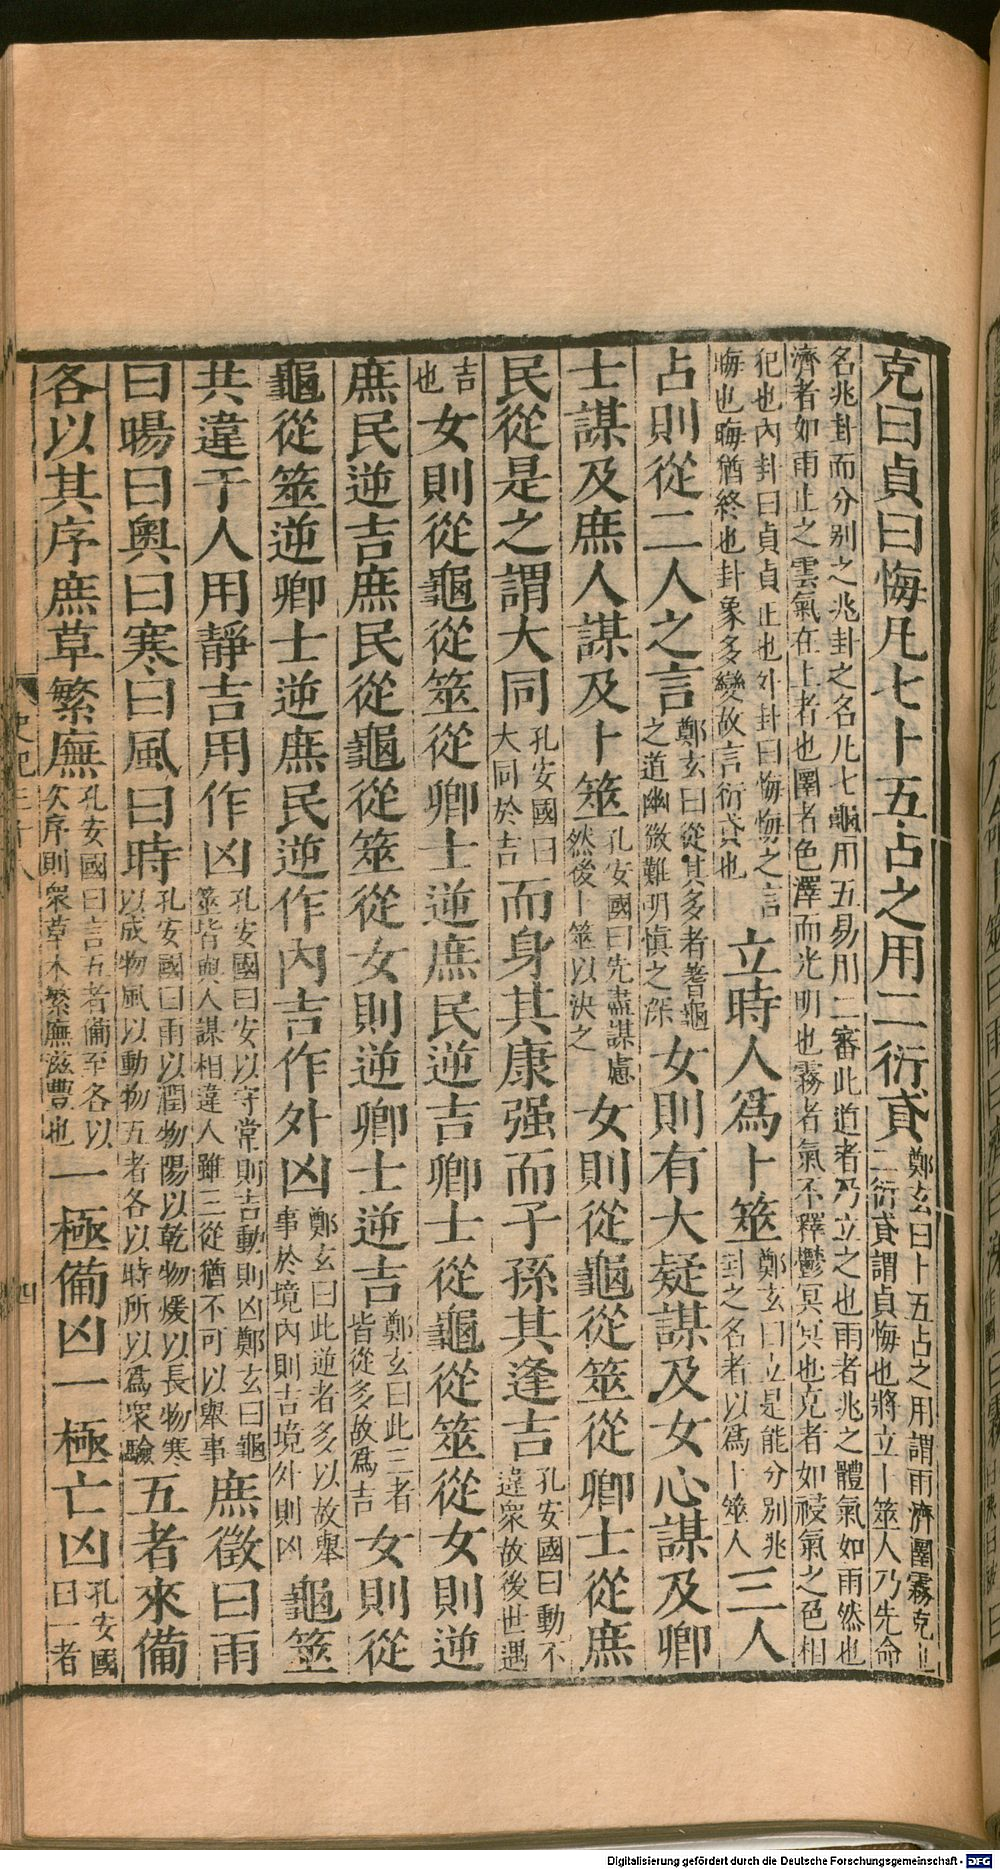 克曰貞曰悔凡七卜五占之用二衍貣鄭玄曰卜五占之用謂雨濟圛霧克也二衍貣謂貞悔也將立卜筮人乃先命
名兆卦而分别之兆卦之名凡七龜用五易用二審此道者乃立之也雨者兆之體氣如雨然也
濟者如雨止之雲氣在上者也圛者色澤而光明也霧者氣不釋鬱冥冥也克者如祲氣之色相
犯也内卦曰貞貞正也外卦曰悔悔之言
晦也晦猶終也卦象多變故言衍貣也立時人爲卜筮鄭玄曰立是能分别兆
卦之名者以爲卜筮人三人
占則從二人之言鄭玄曰從其多者蓍龜
之道幽微難明慎之深女則有大疑謀及女心謀及卿
士謀及庶人謀及卜筮孔安國曰先盡謀慮
然後卜筮以決之女則從龜從筮從卿士從庶
民從是之謂大同孔安國曰
大同於吉而身其康强而子孫其逢吉孔安國曰動不
違衆故後世遇
吉
也女則從龜從筮從卿士逆庶民逆吉卿士從龜從筮從女則逆
庶民逆吉庶民從龜從筮從女則逆卿士逆吉鄭玄曰此三者
皆從多故爲吉女則從
龜從筮逆卿士逆庶民逆作内吉作外凶鄭玄曰此逆者多以故舉
事於境内則吉境外則凶龜筮
共違于人用靜吉用作凶孔安國曰安以守常則吉動則凶鄭玄曰龜
筮皆與人謀相違人雖三從猶不可以舉事庶徵曰雨
曰暘曰奧曰寒曰風曰時孔安國曰雨以潤物陽以乾物煖以長物寒
以成物風以動物五者各以時所以爲衆驗五者來備
各以其序庶草繁廡孔安國曰言五者備至各以
次序則衆草木繁廡滋豐也一極備凶一極亡凶孔安國
曰一者
史記三十八
四
Digitalisierung gefördert durch die Deutsche Forschungsgemeinschaft - DFG